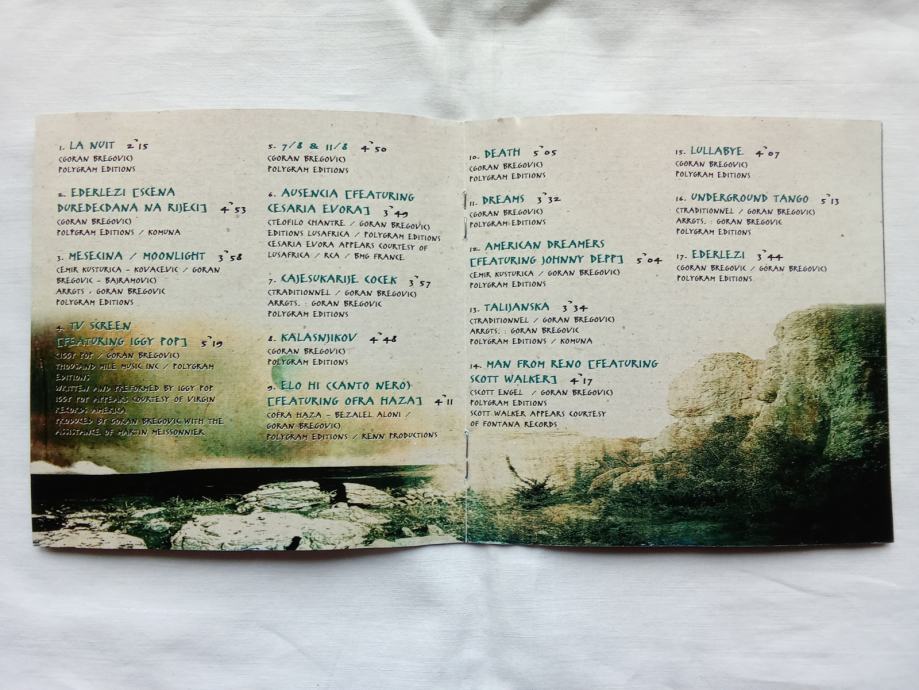 1. LA NUIT 2'15
(GORAN BREGOVIC)
POLYGRAM EDITIONS
2. EDERLEZI [SCENA
DUREDECDANA NA RIJECI] 4'53
(GORAN BREGOVIC)
POLYGRAM EDITIONS / KOMUNA
3. MESECINA / MOONLIGHT 3'58
(EMIR KUSTURICA - KOVACEVIC / GORAN
BREGOVIC - BAJRAMOVIC)
ARRGTS : GORAN BREGOVIC
POLYGRAM EDITIONS
4. TV SCREEN
[FEATURING IGGY POP] 5'19
(IGGY POP / GORAN BREGOVIC)
THOUSAND MILE MUSIC INC / POLYGRAM
EDITIONS
WRITTEN AND PREFORMED BY IGGY POP
IGGY POP APPEARS COURTESY OF VIRGIN
RECORDS AMERICA
PRODUCED BY GORAN BREGOVIC WITH THE
ASSISTANCE OF MARTIN MEISSONNIER
5. 7/8 & 11/8 4'50
(GORAN BREGOVIC)
POLYGRAM EDITIONS
6. AUSENCIA [FEATURING
CESARIA EVORA] 3'49
(TEOFILO CHANTRE / GORAN BREGOVIC)
EDITIONS LUSAFRICA / POLYGRAM EDITIONS
CESARIA EVORA APPEARS COURTESY OF
LUSAFRICA / RCA / BMG FRANCE
7. CAJESUKARIJE COCEK 3'57
(TRADITIONNEL / GORAN BREGOVIC)
ARRGTS. : GORAN BREGOVIC
POLYGRAM EDITIONS
8. KALASNJIKOV 4'48
(GORAN BREGOVIC)
POLYGRAM EDITIONS
9. ELO HI (CANTO NERO)
[FEATURING OFRA HAZA] 4'11
(OFRA HAZA - BEZALEL ALONI /
GORAN BREGOVIC)
POLYGRAM EDITIONS / RENN PRODUCTIONS
10. DEATH 5'05
(GORAN BREGOVIC)
POLYGRAM EDITIONS
11. DREAMS 3'32
(GORAN BREGOVIC)
POLYGRAM EDITIONS
12. AMERICAN DREAMERS
[FEATURING JOHNNY DEPP] 5'04
(EMIR KUSTURICA / GORAN BREGOVIC)
POLYGRAM EDITIONS
13. TALIJANSKA 3'34
(TRADITIONNEL / GORAN BREGOVIC)
ARRGTS. : GORAN BREGOVIC
POLYGRAM EDITIONS / KOMUNA
14. MAN FROM RENO [FEATURING
SCOTT WALKER] 4'17
(SCOTT ENGEL / GORAN BREGOVIC)
POLYGRAM EDITIONS
SCOTT WALKER APPEARS COURTESY
OF FONTANA RECORDS
15. LULLABYE 4'07
(GORAN BREGOVIC)
POLYGRAM EDITIONS
16. UNDERGROUND TANGO 5'13
(TRADITIONNEL / GORAN BREGOVIC)
ARRGTS. : GORAN BREGOVIC
POLYGRAM EDITIONS
17. EDERLEZI 3'44
(GORAN BREGOVIC / GORAN BREGOVIC)
POLYGRAM EDITIONS